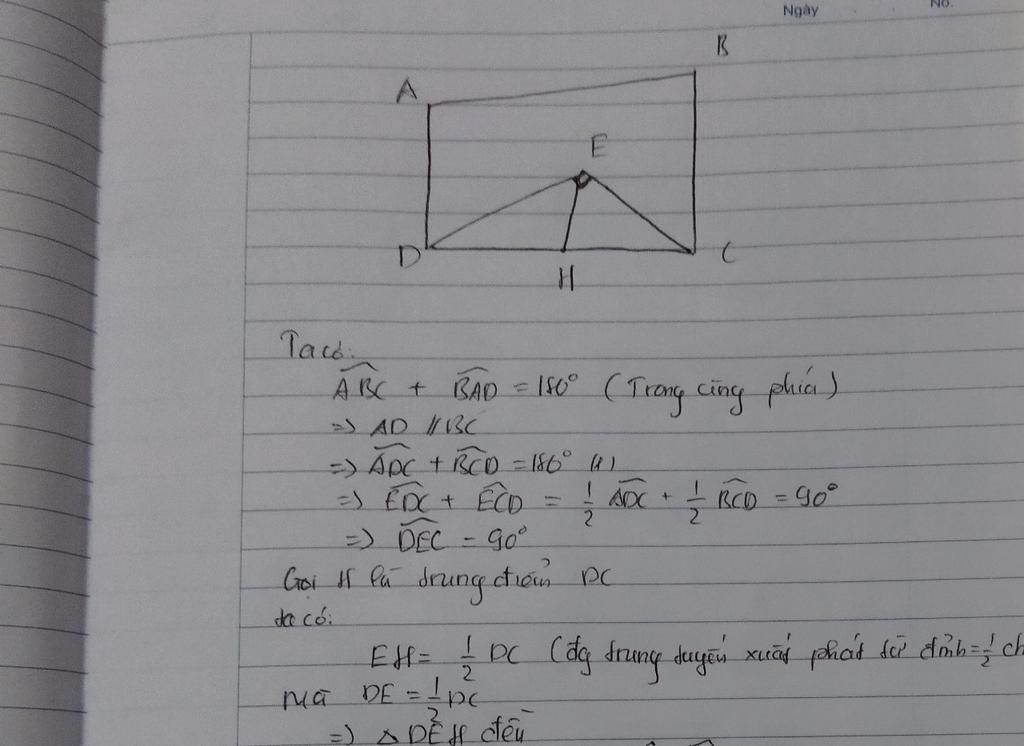 Ngày No.
B
A
E
D C
H
Ta có:
ABC + BAD = 180° (Trong cùng phía)
=> AD // BC
=> ADC + BCD = 180° (1)
=> EDC + ECD = 1/2 ADC + 1/2 BCD = 90°
=> DEC = 90°
Gọi H là trung điểm DC
ta có:
EH = 1/2 DC (đg trung tuyến xuất phát từ đỉnh = 1/2 ch
Mà DE = 1/2 DC
=> △ DEH đều